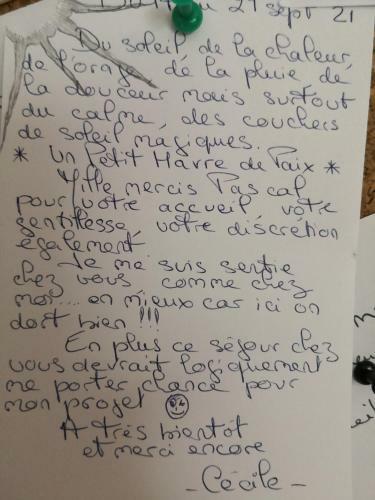 27 sept 21
Du soleil de la chaleur,
de l'orage de la pluie de
la douceur mais surtout
du calme, des couchers
de soleil magiques.
* Un Petit Havre de Paix *
Mille mercis Pascal
pour votre accueil votre
gentillesse votre discrétion
également
Je me suis sentie
chez vous comme chez
moi.... en mieux car ici on
dort bien !!!
En plus ce séjour chez
vous devrait logiquement
me porter chance pour
mon projet
A très bientôt
et merci encore
- Cécile -